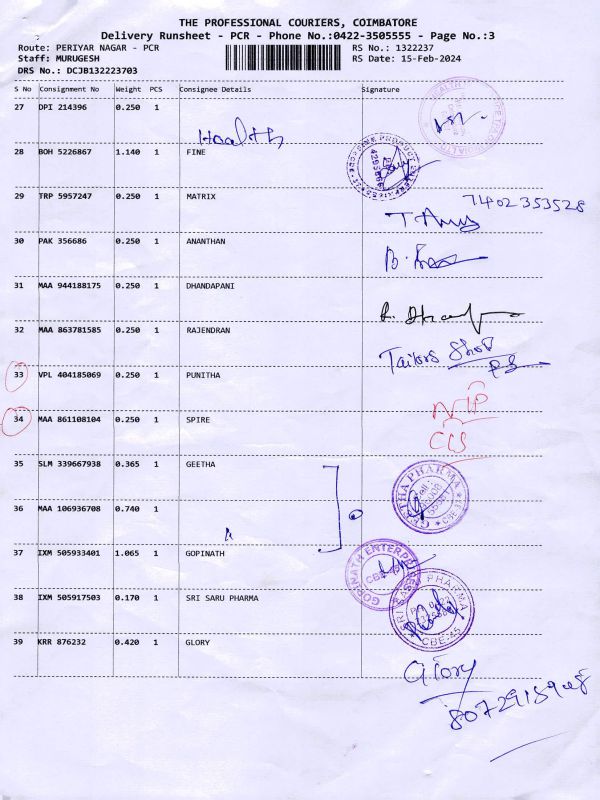 THE PROFESSIONAL COURIERS, COIMBATORE
Delivery Runsheet - PCR - Phone No.:0422-3505555 - Page No.:3
Route: PERIYAR NAGAR - PCR
RS No.: 1322237
Staff: MURUGESH
RS Date: 15-Feb-2024
DRS No.: DCJB132223703
S No Consignment No Weight PCS Consignee Details Signature
27 DPI 214396 0.250 1
Health
28 BOH 5226867 1.140 1 FINE
29 TRP 5957247 0.250 1 MATRIX
7402353528
30 PAK 356686 0.250 1 ANANTHAN
31 MAA 944188175 0.250 1 DHANDAPANI
32 MAA 863781585 0.250 1 RAJENDRAN
Tailors Shop
33 VPL 404185069 0.250 1 PUNITHA
34 MAA 861108104 0.250 1 SPIRE
35 SLM 339667938 0.365 1 GEETHA
GEETHA PHARMA
36 MAA 106936708 0.740 1
37 IXM 505933401 1.065 1 GOPINATH
GOPINATH ENTERPRISES
38 IXM 505917503 0.170 1 SRI SARU PHARMA
PHARMA
CBE-45
39 KRR 876232 0.420 1 GLORY
Glory